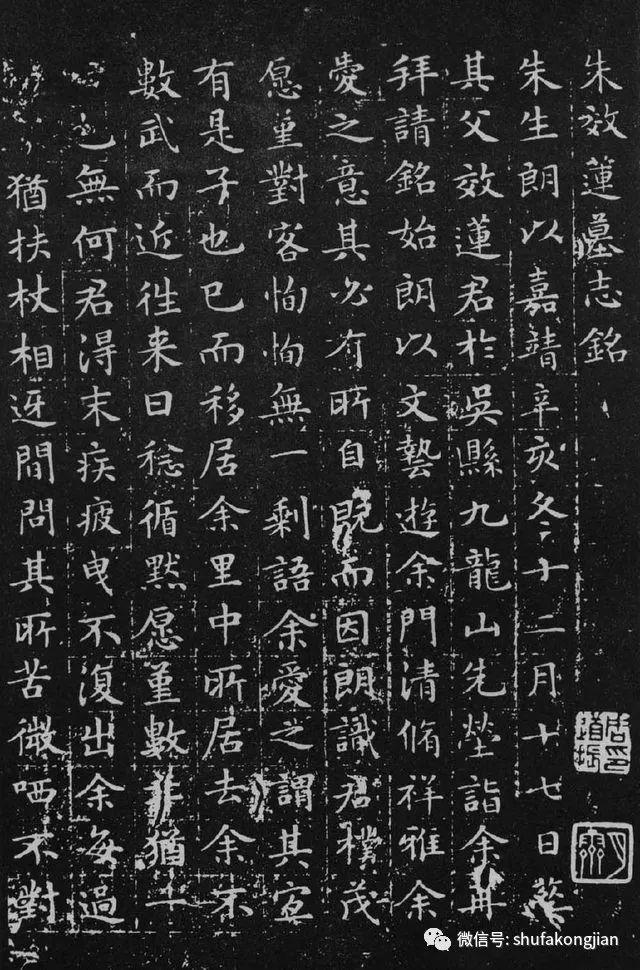 朱效蓮墓志銘
朱生朗以嘉靖辛亥冬十二月十七日葬
其父效蓮君於吳縣九龍山先塋詣余再
拜請銘始朗以文藝遊余門清脩祥雅余
愛之意其必有所自既而因朗識君樸茂
愿重對客恂恂無一剩語余愛之謂其宜
有是子也已而移居余里中所居去余不
數武而近往来日稔循默愿重數猶一
也無何君得末疾疲曳不復出余每過
猶扶杖相迓間問其所苦微哂不對
周印道振
微信号: shufakongjian